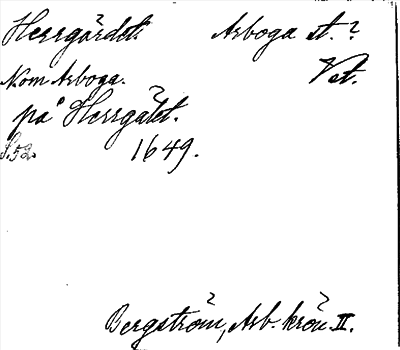 Herrgärdet. Arboga st. ?
Nom Arboga. Vst.
på Herrgålet.
S. 52. 1649.
Bergström, Arb. krön. II.